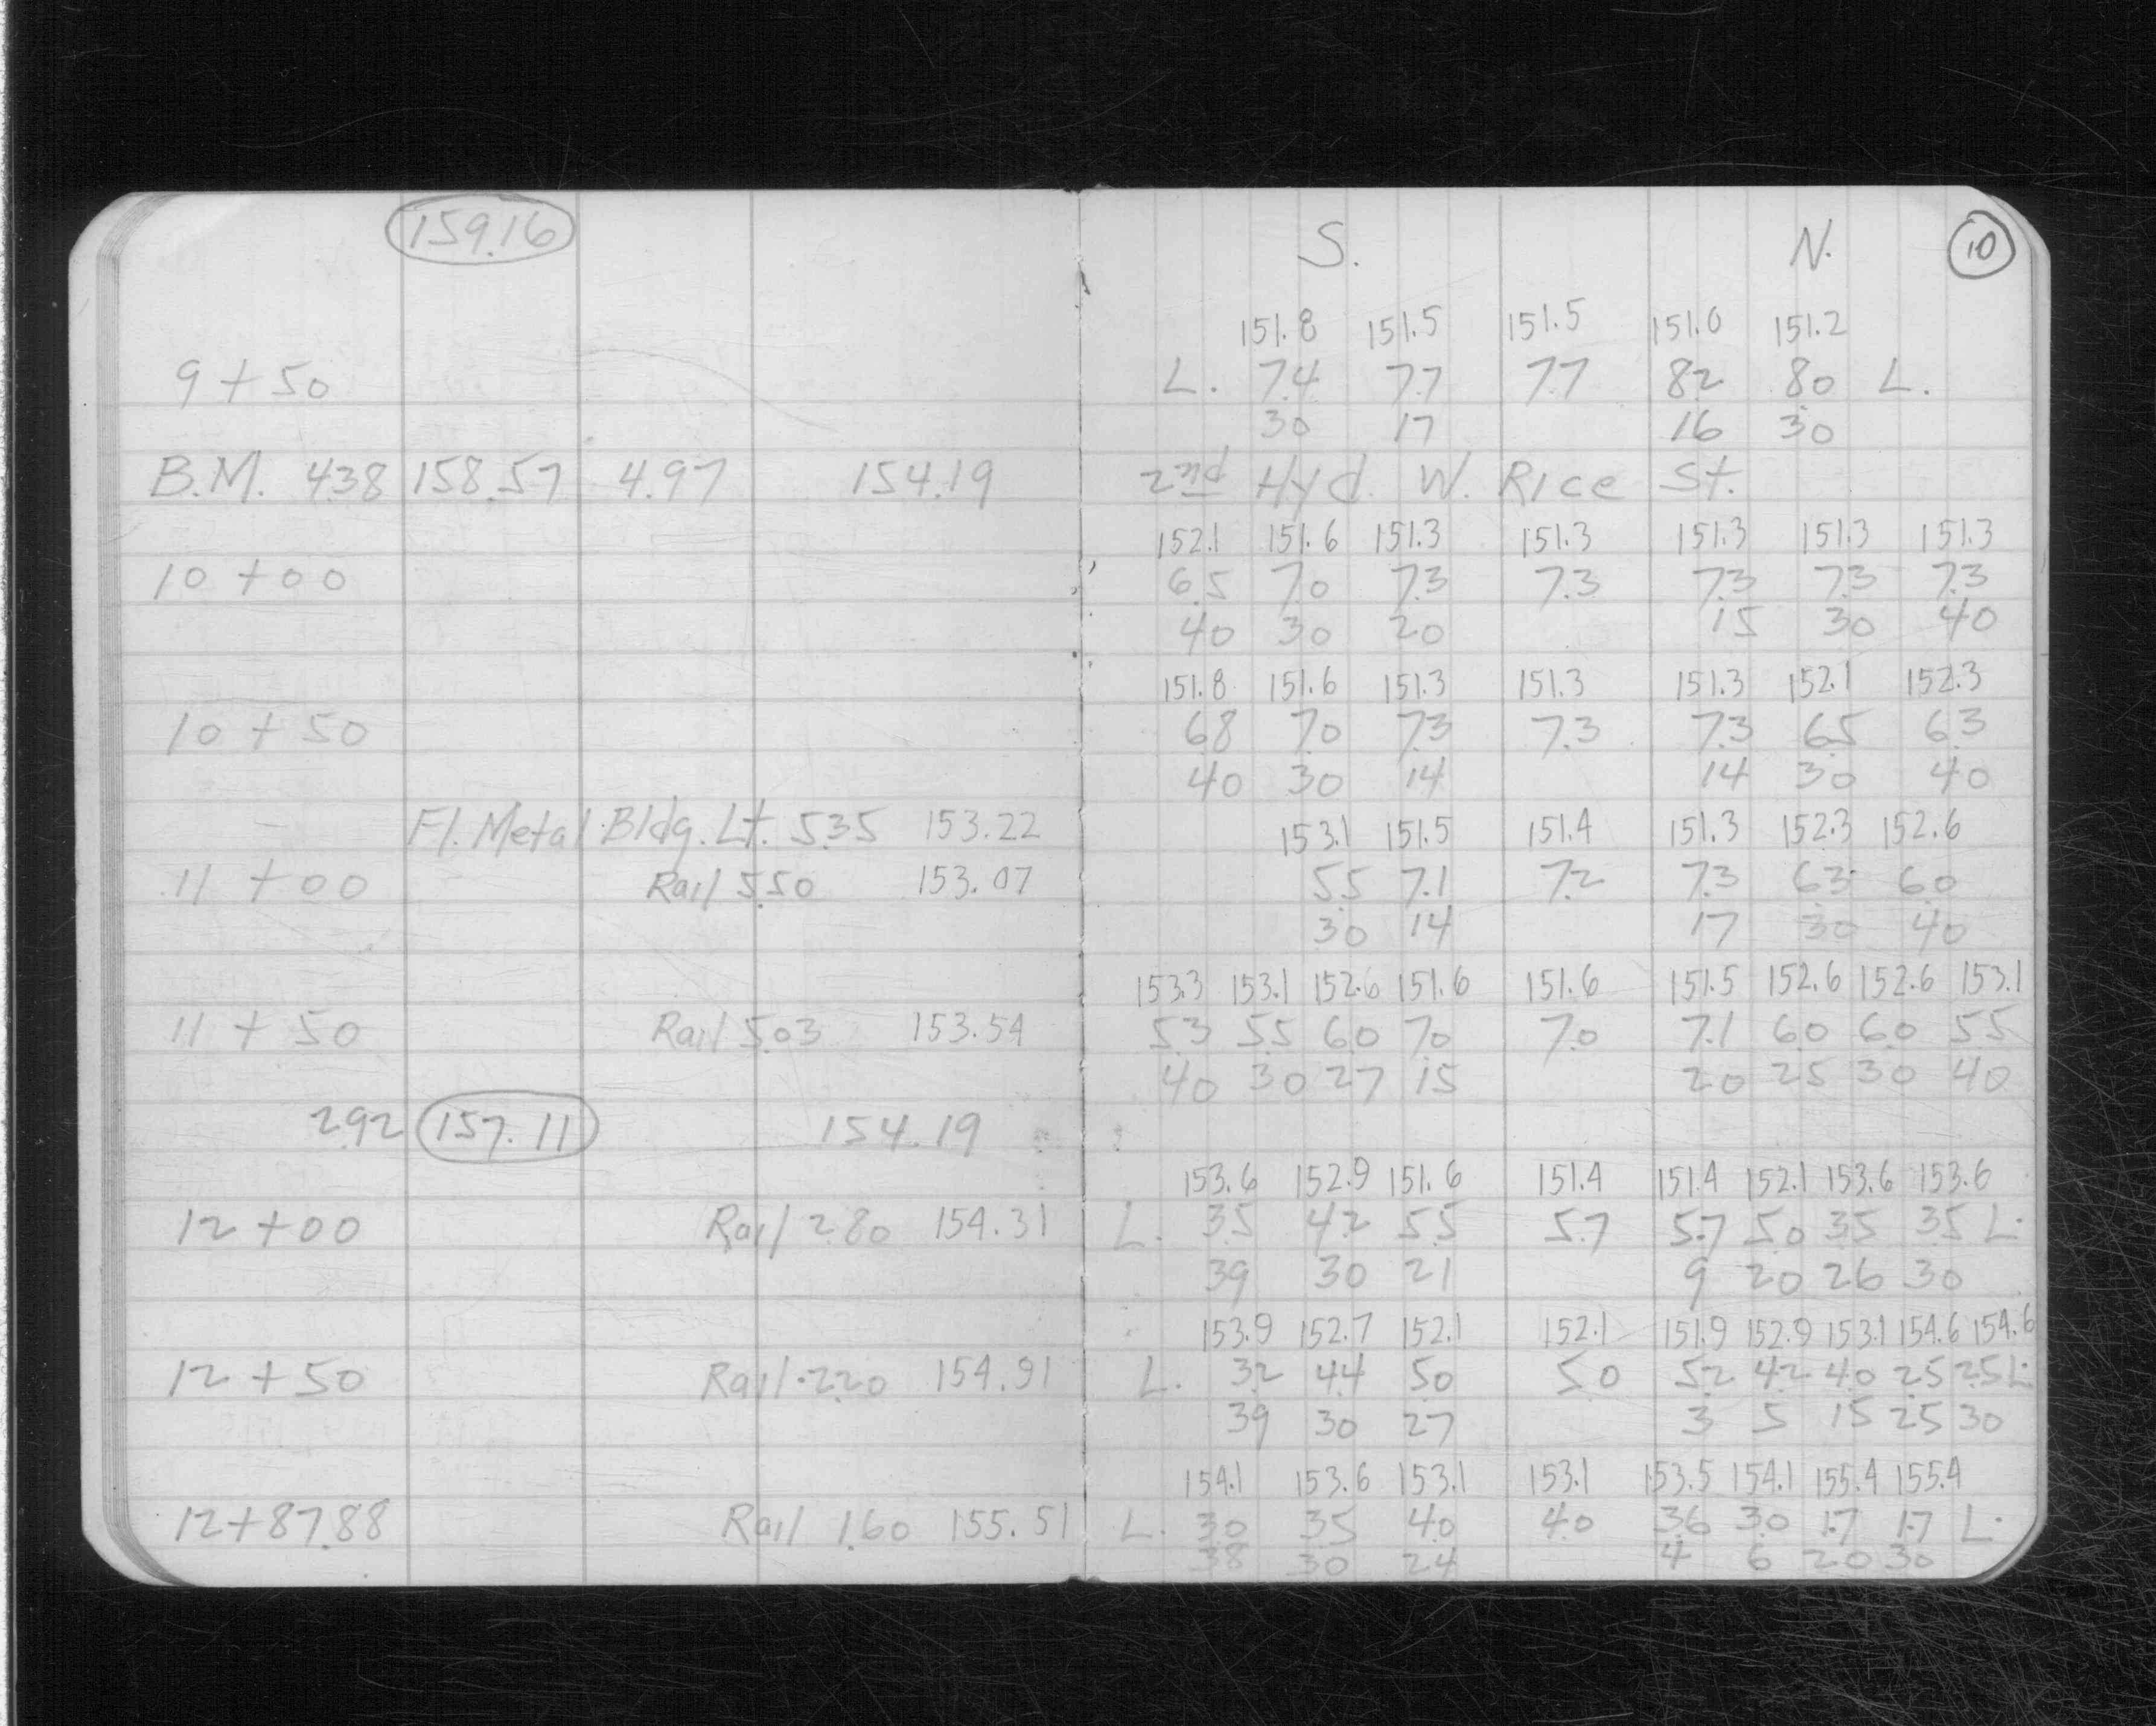 159.16 S. N. 10
151.8 151.5 151.5 151.0 151.2
9+50 L. 7.4 7.7 7.7 8.2 8.0 L.
30 17 16 30
B.M. 4.38 158.57 4.97 154.19 2nd Hyd. W. Rice St.
152.1 151.6 151.3 151.3 151.3 151.3 151.3
10+00 6.5 7.0 7.3 7.3 7.3 7.3 7.3
40 30 20 15 30 40
151.8 151.6 151.3 151.3 151.3 152.1 152.3
10+50 6.8 7.0 7.3 7.3 7.3 6.5 6.3
40 30 14 14 30 40
Fl. Metal Bldg. Lt. 5.35 153.22 153.1 151.5 151.4 151.3 152.3 152.6
11+00 Rail 5.50 153.07 5.5 7.1 7.2 7.3 6.3 6.0
30 14 17 30 40
153.3 153.1 152.6 151.6 151.6 151.5 152.6 152.6 153.1
11+50 Rail 5.03 153.54 5.3 5.5 6.0 7.0 7.0 7.1 6.0 6.0 5.5
40 30 27 15 20 25 30 40
2.92 157.11 154.19
153.6 152.9 151.6 151.4 151.4 152.1 153.6 153.6
12+00 Rail 2.80 154.31 L. 3.5 4.2 5.5 5.7 5.7 5.0 3.5 3.5 L.
39 30 21 9 20 26 30
153.9 152.7 152.1 152.1 151.9 152.9 153.1 154.6 154.6
12+50 Rail 2.20 154.91 L. 3.2 4.4 5.0 5.0 5.2 4.2 4.0 2.5 2.5 L.
39 30 27 3 5 15 25 30
154.1 153.6 153.1 153.1 153.5 154.1 155.4 155.4
12+87.88 Rail 1.60 155.51 L. 3.0 3.5 4.0 4.0 3.6 3.0 1.7 1.7 L.
38 30 24 4 6 20 30